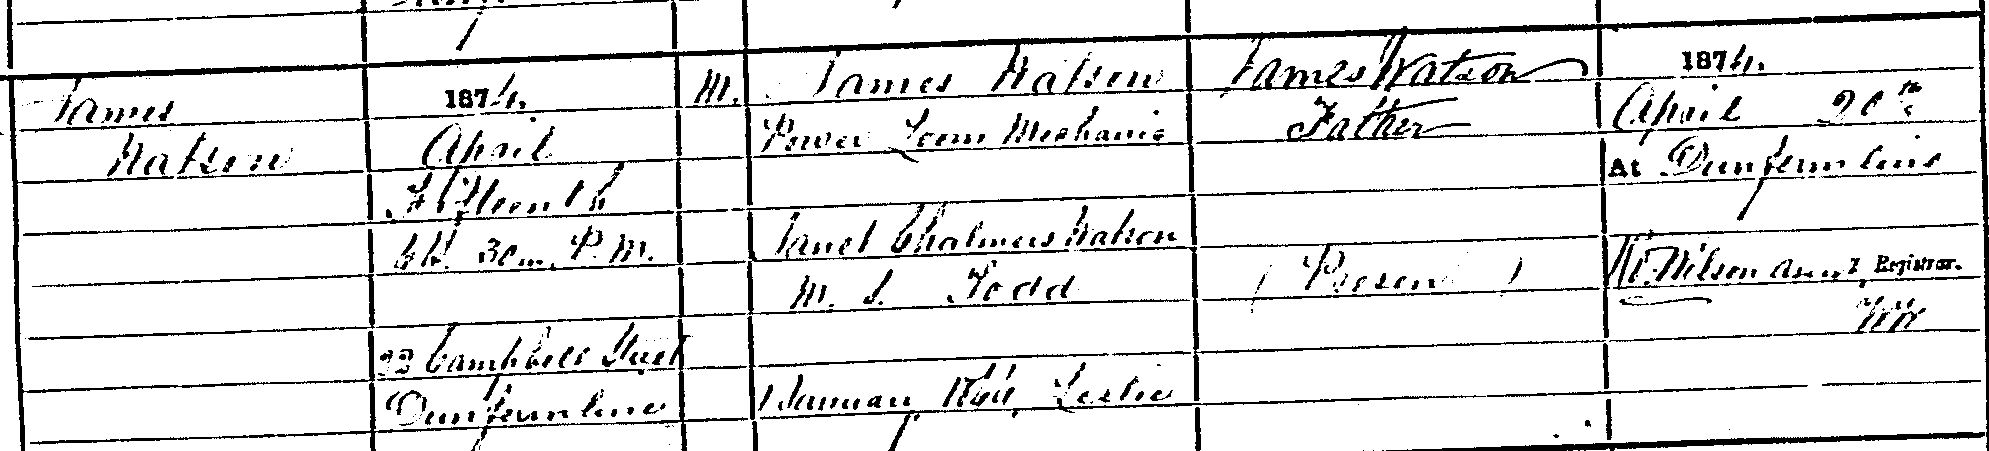 James
Watson
1874.
April
Fifteenth
6h. 30m. P.M.
22 Campbell Street
Dunfermline
M.
James Watson
Power Loom Mechanic
Janet Chalmers Watson
M. S. Todd
January, Leslie
James Watson
Father
(Present)
1874.
April 20th
At Dunfermline
Wilson Registrar.